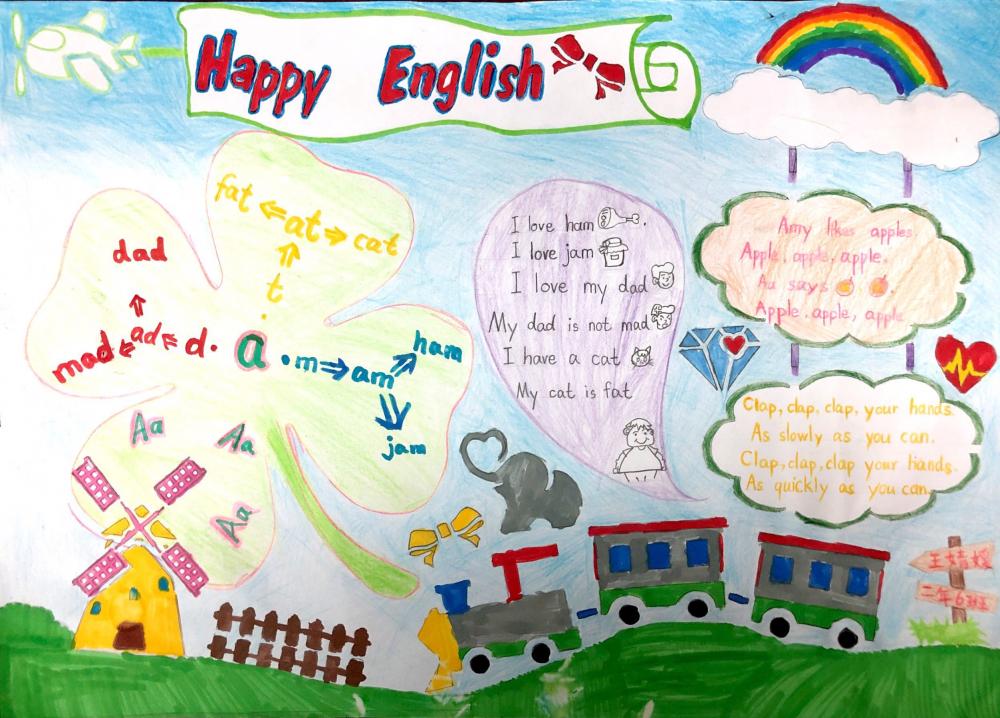 Happy English
fat ⇐ at ⇒ cat
⇑
t
dad
↑
mad ⇐ ad ⇐ d.
a
.m ⇒ am
ham
jam
Aa
Aa
Aa
I love ham.
I love jam
I love my dad
My dad is not mad
I have a cat
My cat is fat
Amy likes apples.
Apple, apple, apple.
Aa says
Apple, apple, apple
Clap, clap, clap, your hands.
As slowly as you can.
Clap, clap, clap your hands.
As quickly as you can.
王婧媛
二年6班